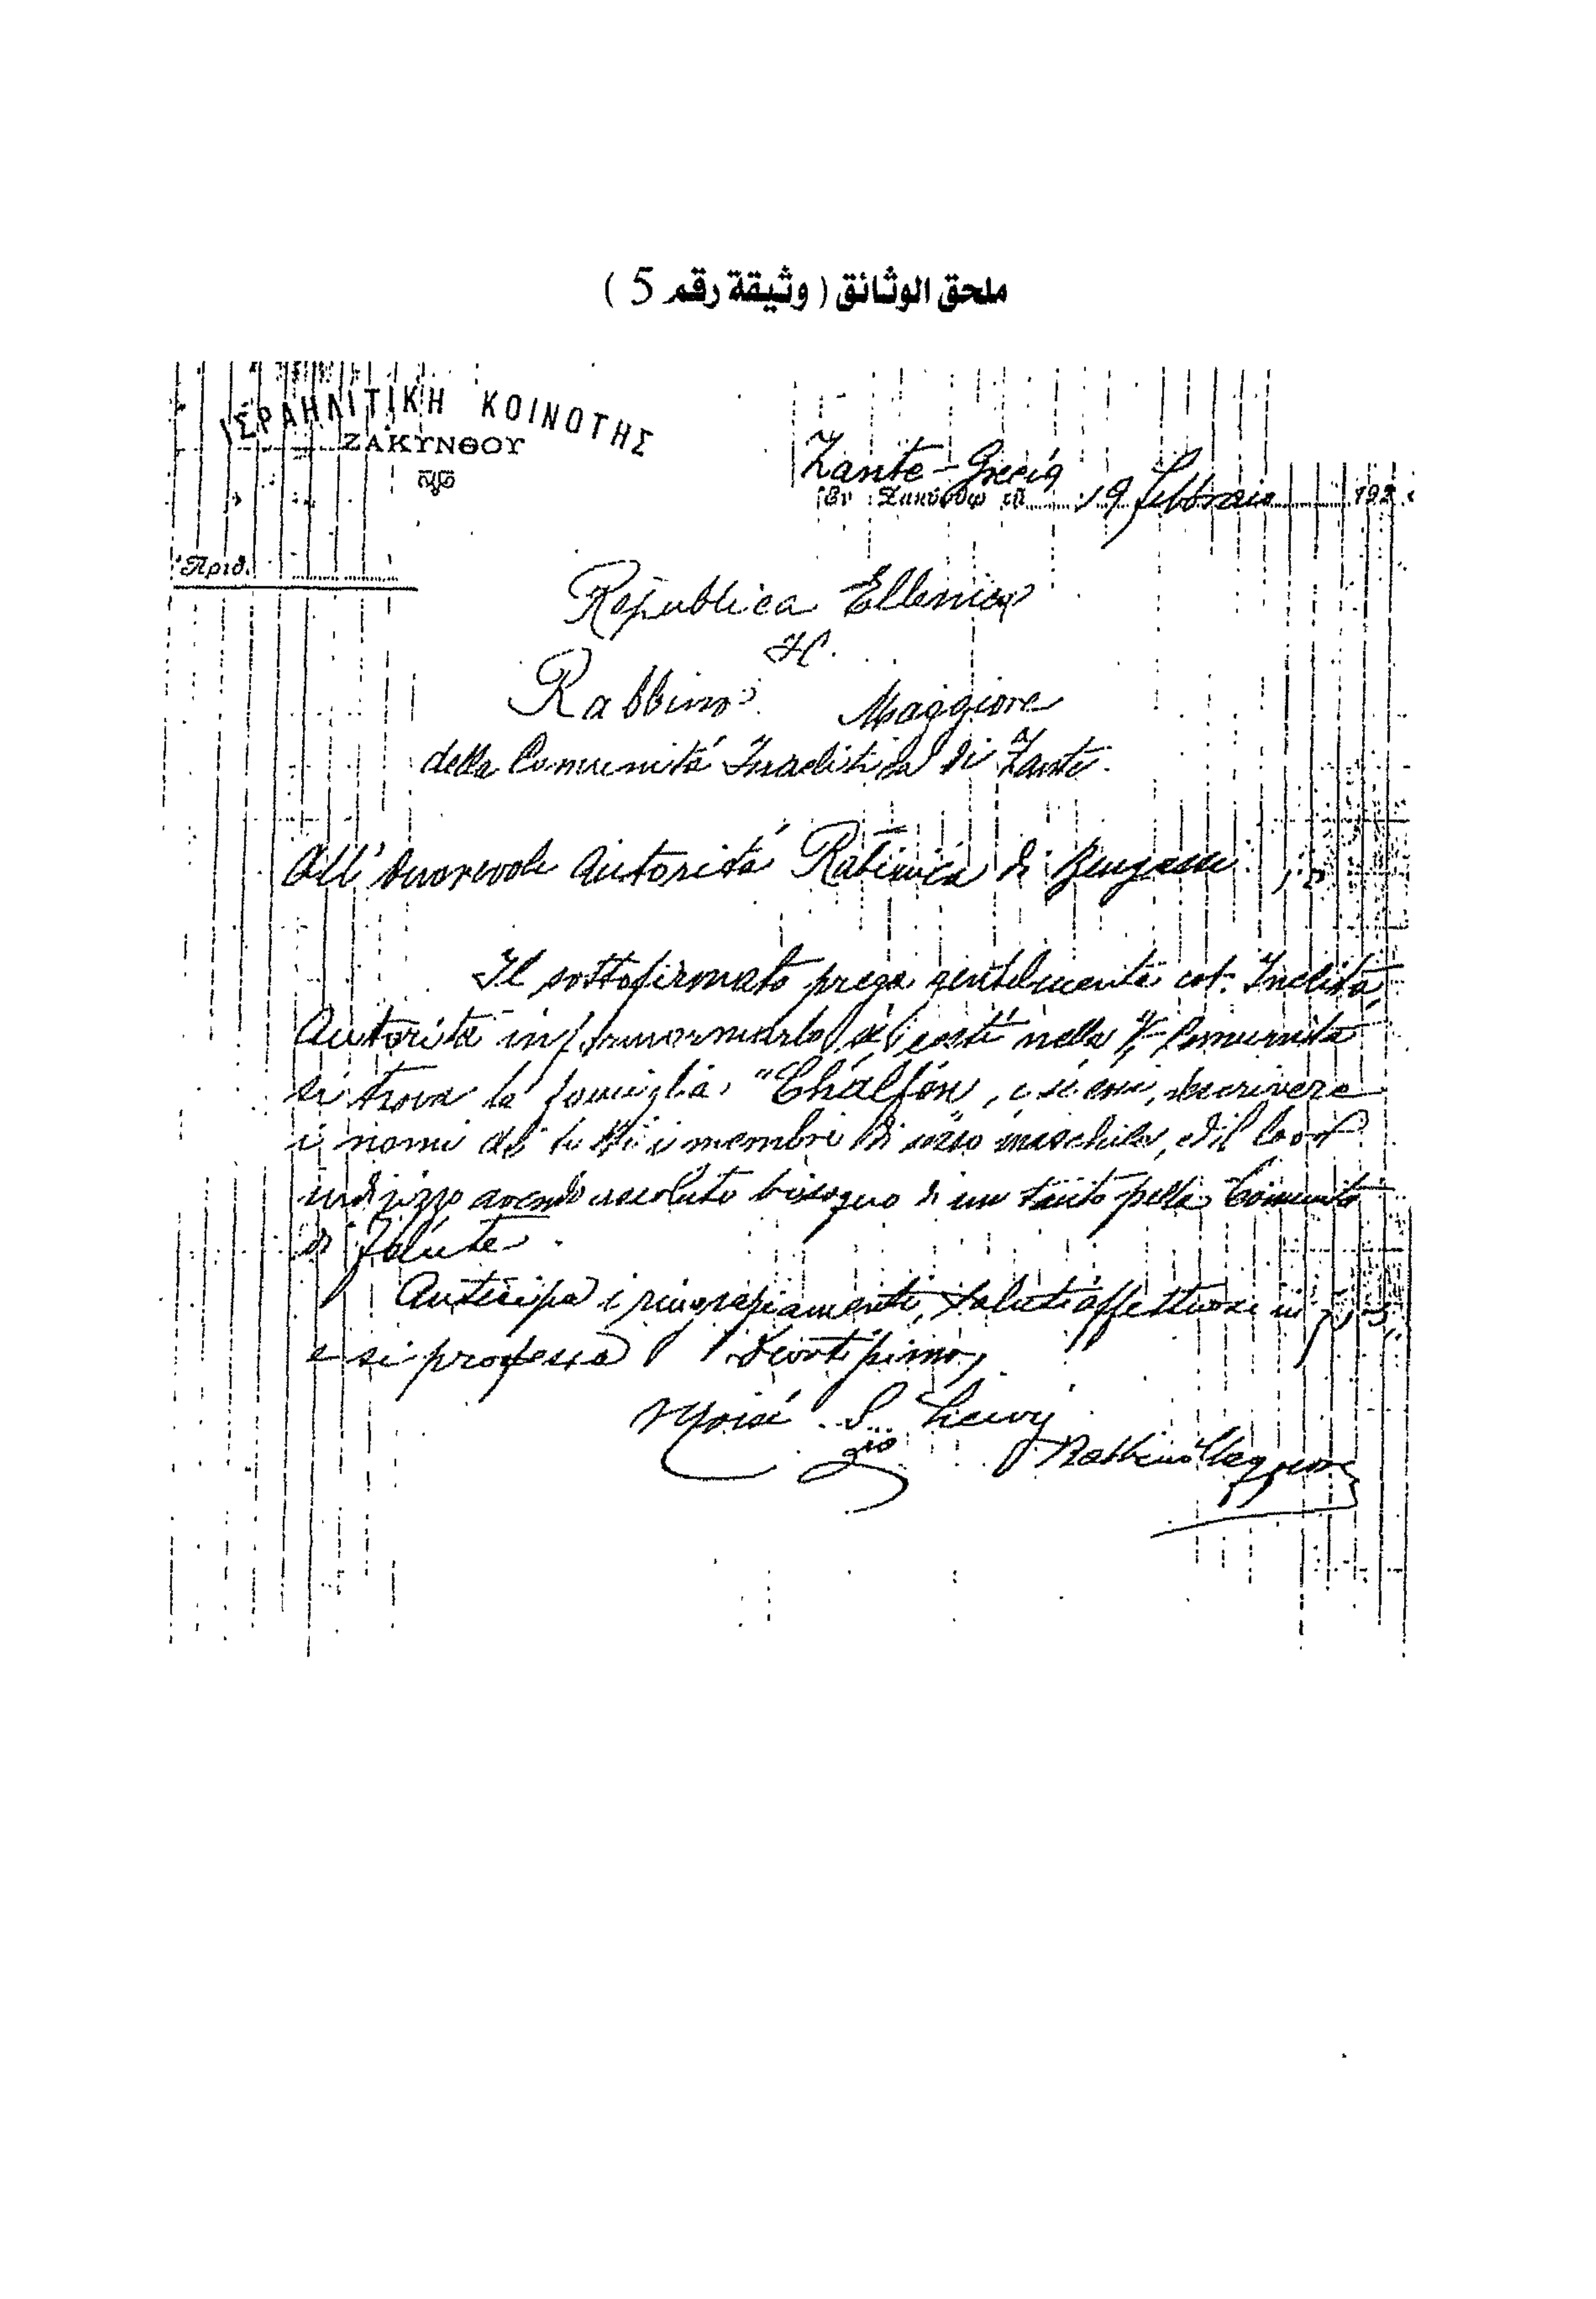 ملحق الوثائق ( وثيقة رقم 5 )
ΙΣΡΑΗΛΙΤΙΚΗ ΚΟΙΝΟΤΗΣ
ΖΑΚΥΝΘΟΥ
Zante - Grecia
Ἐν Ζακύνθῳ τῇ 19 Febbraio 192
Ἀριθ.
Republica Ellenica
Il
Rabbino Maggiore
della Comunitá Israelitica di Zante.
All' Onorevole Autoritá Rabinica di Bengasi
Il sottofirmato prega gentilmente cot. Inclitá
Autoritá informarlo se costí nella Comunitá
si trova la famiglia "Chalfon, e si cosi, descrivere
i nomi di tutti i membri di sesso maschile, ed il loro
indizzo avendo assoluto bisogno di un tanto pella Comunitá
di Zante.
Anticipa i ringraziamenti, saluti affettuosi
e si professa Devotissimo,
Moisé S. Levy
Rabbino Maggiore